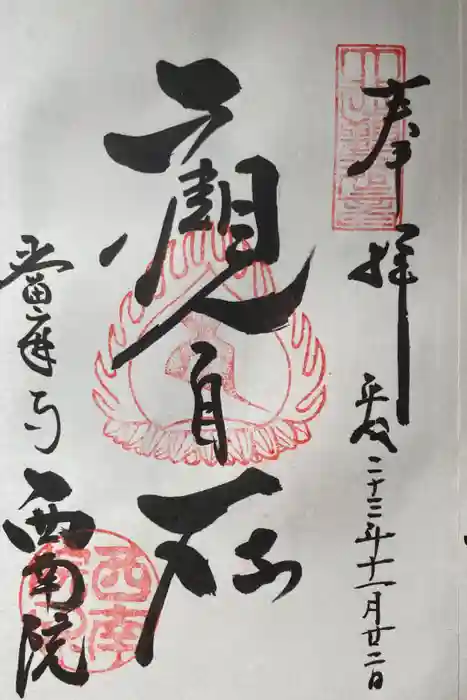 奉拝
平成二十三年十一月廿二日
觀自在
當麻寺
西南院
西南院